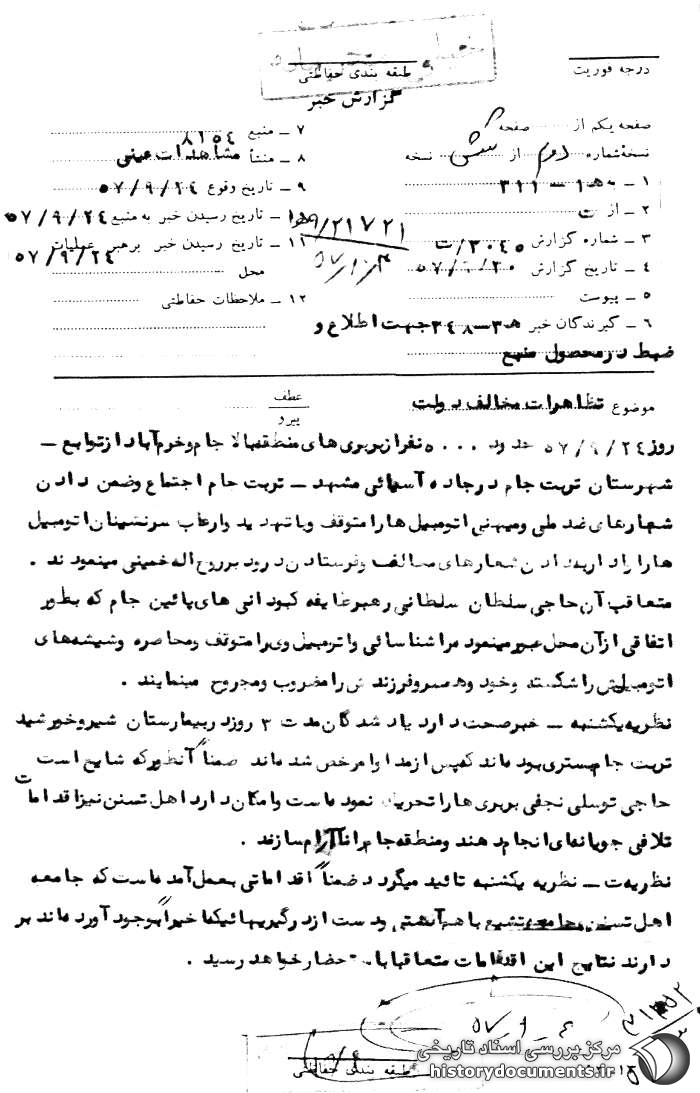 درجه فوریت
طبقه بندی حفاظتی
گزارش خبر
صفحه یکم از صفحه
نسخهٔ شماره دوم از شش نسخه
۱ ــ به ۳۱۱ ــ ۱ ه‍
۲ ــ از ت
۳ ــ شماره گزارش ۳۰۴۵/ت
۴ ــ تاریخ گزارش ۵۷/۹/۳۰
۵ ــ پیوست
۶ ــ گیرندگان خبر ه‍ ۳ــ۳۴۸ جهت اطلاع و
ضبط در محصول منبع
۷ ــ منبع ۸۱۵۴
۸ ــ منشأ مشاهدات عینی
۹ ــ تاریخ وقوع ۵۷/۹/۲۴
۱۰ ــ تاریخ رسیدن خبر به منبع ۵۷/۹/۲۴
۱۱ ــ تاریخ رسیدن خبر برهبر عملیات
محل ۵۷/۹/۲۴
۱۲ ــ ملاحظات حفاظتی
موضوع تظاهرات مخالف دولت
عطف
پیرو
روز ۵۷/۹/۲۴ حدود ۵۰۰۰ نفر از بربری های منطقه بالا جام و خرم آباد از توابع ــ
شهرستان تربت جام در جاده آسیائی مشهد ــ تربت جام اجتماع وضمن دادن
شعارهای ضد ملی ومیهنی اتومبیل ها را متوقف وبا تهدید وارعاب سرنشینان اتومبیل
ها را وادار بدادن شعارهای مخالف وفرستادن درود بر روح اله خمینی مینمودند .
متعاقب آن حاجی سلطان سلطانی رهبر طایفه کبودانی های پائین جام که بطور
اتفاقی از آن محل عبور مینمود مراشناسائی واتومبیل وی را متوقف ومحاصره وشیشه های
اتومبیلش را شکسته وخود وهمسر وفرزندش را مضروب ومجروح مینمایند .
نظریه یکشنبه ــ خبر صحت دارد یاد شدگان مدت ۳ روز در بیمارستان شیر وخورشید
تربت جام بستری بوده اند که پس از مداوا مرخص شده اند ضمناً آنطور که شایع است
حاجی توسلی نجفی بربری ها را تحریک نموده است وامکان دارد اهل تسنن نیز اقدامات
تلافی جویانه ای انجام دهند ومنطقه جام را ناآرام سازند .
نظریه ت ــ نظریه یکشنبه تائید میگردد ضمناً اقداماتی بعمل آمده است که جامعه
اهل تسنن و جامعه تشیع با هم آشتی ودست از درگیریهائیکه اخیراً بوجود آورده اند بر
دارند نتایج این اقدامات متعاقبا باستحضار خواهد رسید .
طبقه بندی حفاظتی
مرکز بررسی اسناد تاریخی
historydocuments.ir